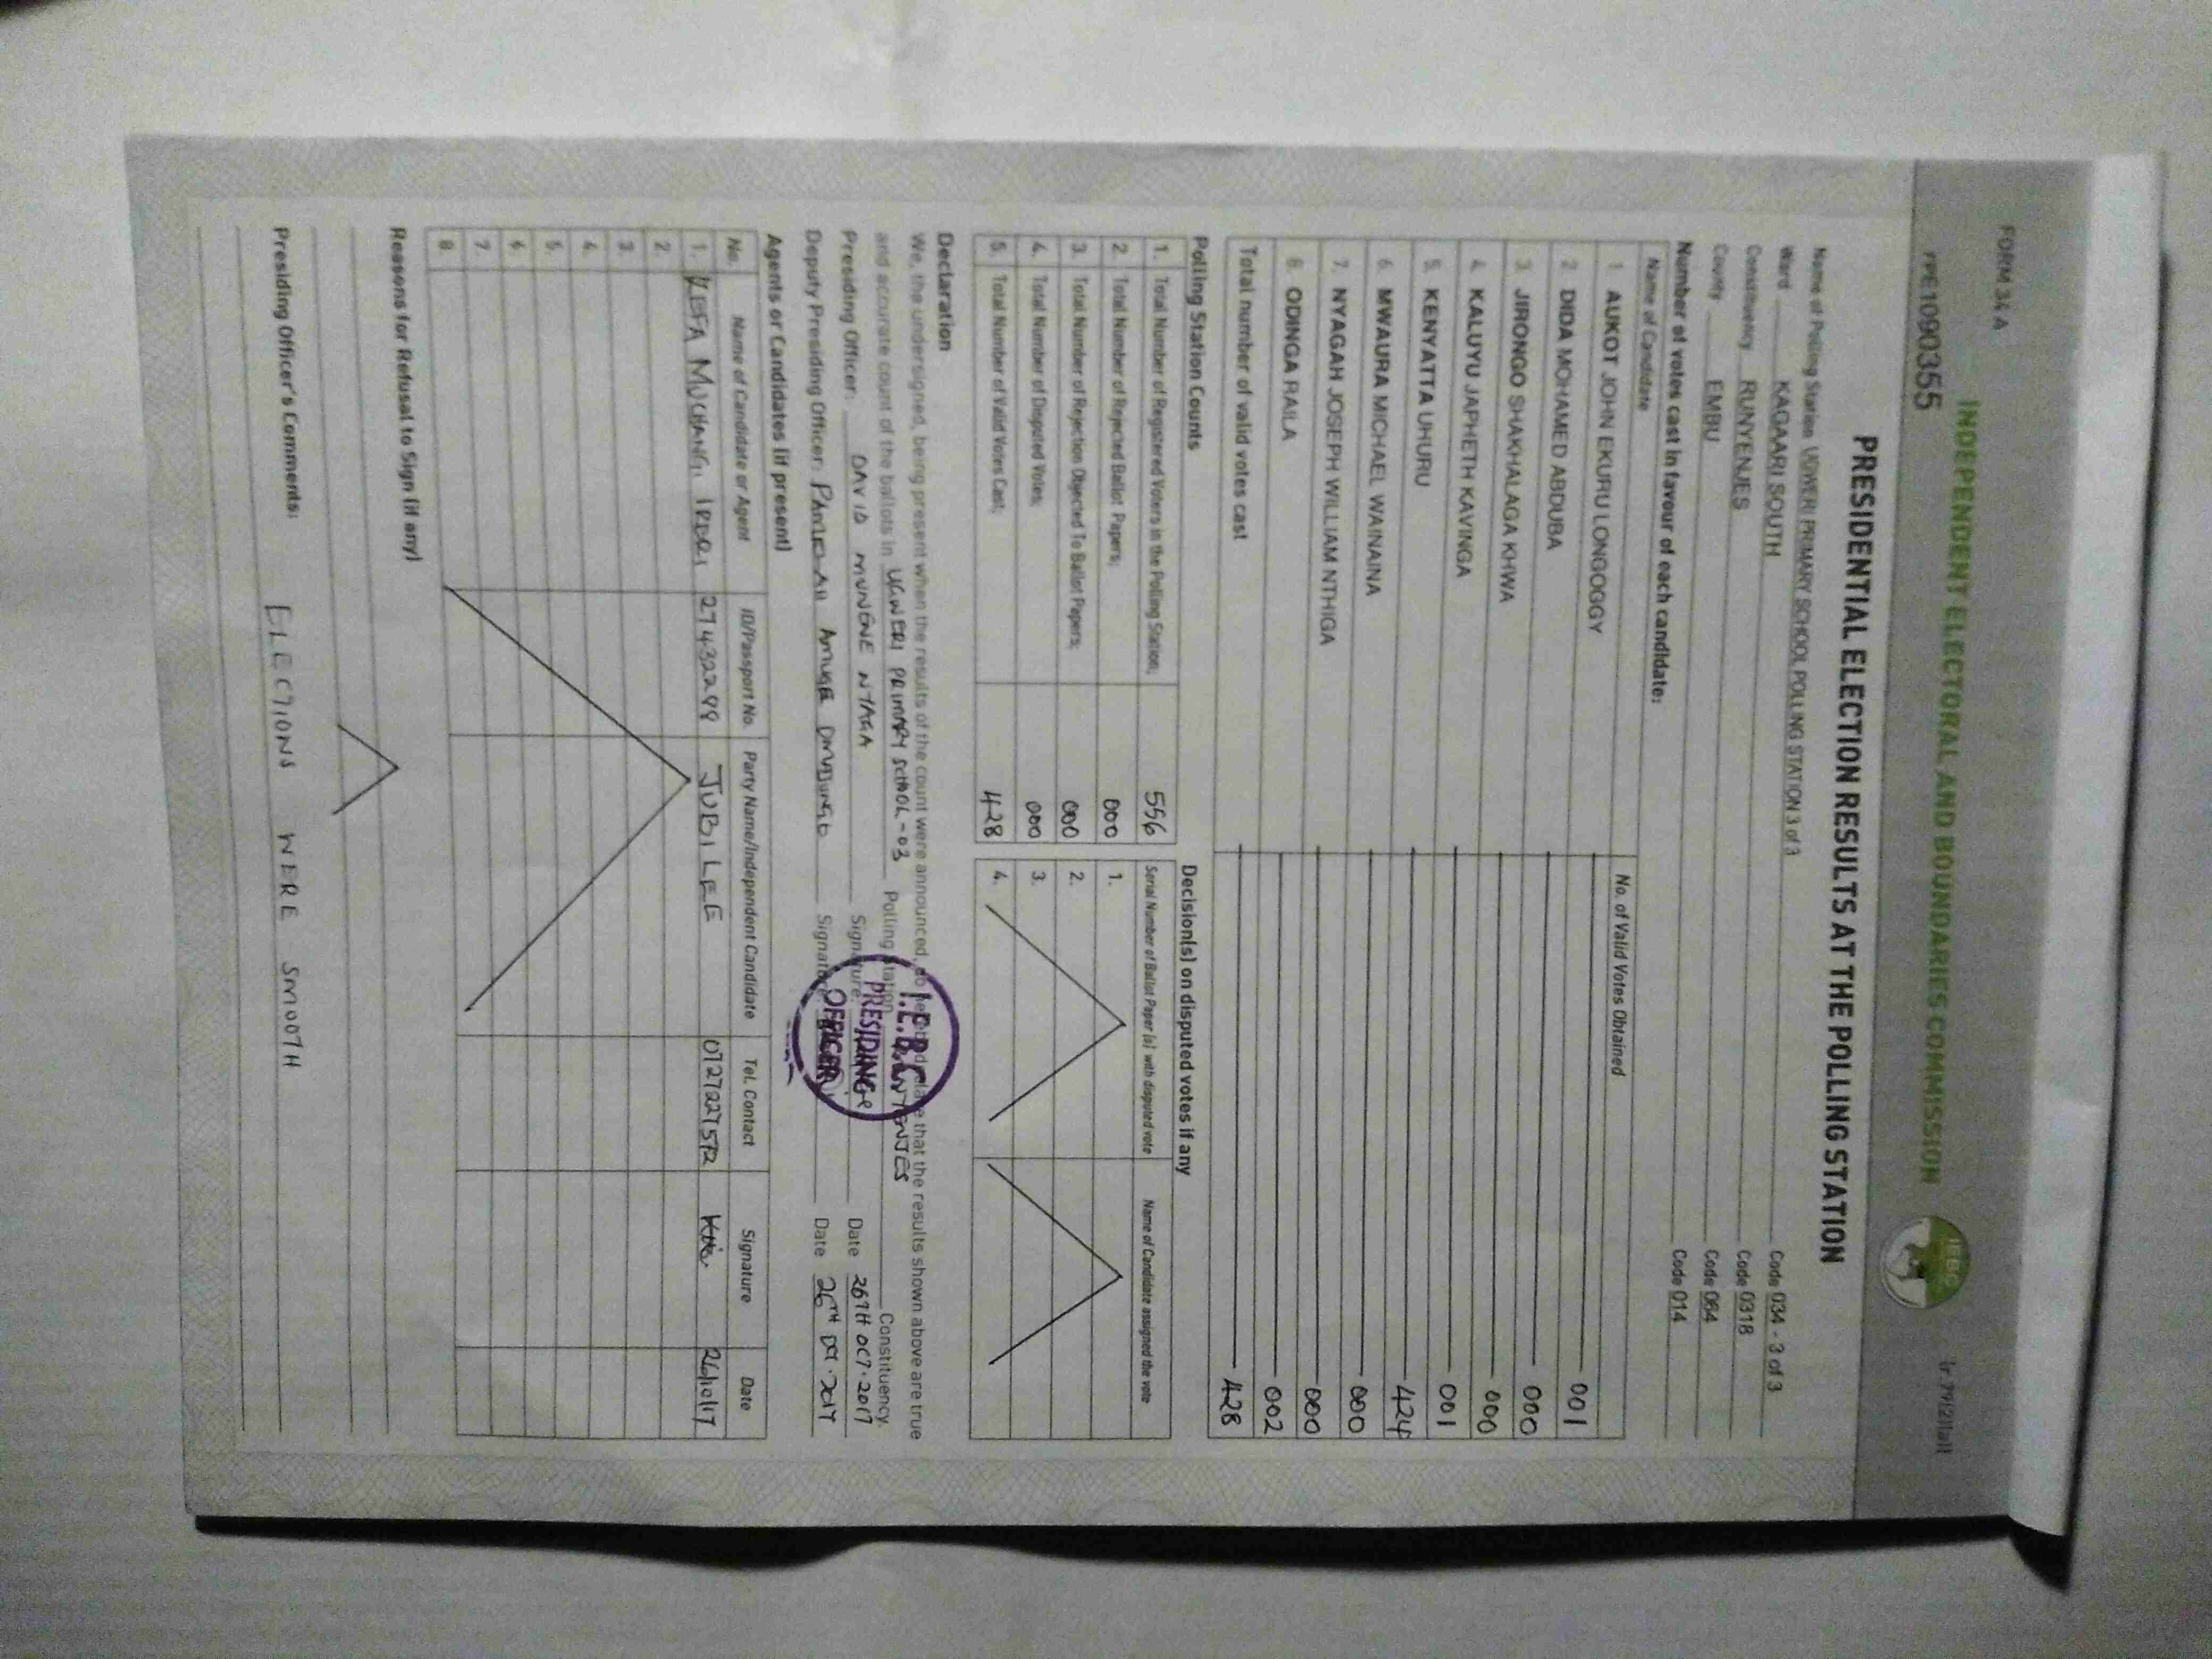 FORM 34 A
INDEPENDENT ELECTORAL AND BOUNDARIES COMMISSION
IEBC
PE1090355
PRESIDENTIAL ELECTION RESULTS AT THE POLLING STATION
Name of Polling Station UGWERI PRIMARY SCHOOL POLLING STATION 3 of 3 Code 034 - 3 of 3
Ward KAGAARI SOUTH Code 0318
Constituency RUNYENJES Code 064
County EMBU Code 014
Number of votes cast in favour of each candidate:
Name of Candidate No. of Valid Votes Obtained
1. AUKOT JOHN EKURU LONGOGGY 001
2. DIDA MOHAMED ABDUBA 000
3. JIRONGO SHAKHALAGA KHWA 000
4. KALUYU JAPHETH KAVINGA 001
5. KENYATTA UHURU 424
6. MWAURA MICHAEL WAINAINA 000
7. NYAGAH JOSEPH WILLIAM NTHIGA 000
8. ODINGA RAILA 002
Total number of valid votes cast 428
Polling Station Counts
1. Total Number of Registered Voters in the Polling Station; 556
2. Total Number of Rejected Ballot Papers; 000
3. Total Number of Rejection Objected To Ballot Papers; 000
4. Total Number of Disputed Votes; 000
5. Total Number of Valid Votes Cast; 428
Decision(s) on disputed votes if any
Serial Number of Ballot Paper (s) with disputed vote Name of Candidate assigned the vote
1.
2.
3.
4.
Declaration
We, the undersigned, being present when the results of the count were announced, do hereby declare that the results shown above are true
and accurate count of the ballots in UGWERI PRIMARY SCHOOL - 03 Polling Station RUNYENJES Constituency.
Presiding Officer: DAVID MUNENE NTAGA Signature: Date 26TH OCT. 2017
Deputy Presiding Officer: Signature: Date 26TH OCT. 2017
I.E.B.C
PRESIDING
OFFICER
Agents or Candidates (if present)
No. Name of Candidate or Agent ID/Passport No. Party Name/Independent Candidate Tel. Contact Signature Date
1. KEFA MUCHANGI IRERI 27432299 JUBILEE 0727227572 26/10/17
2.
3.
4.
5.
6.
7.
8.
Reasons for Refusal to Sign (if any)
Presiding Officer's Comments: ELECTIONS WERE SMOOTH